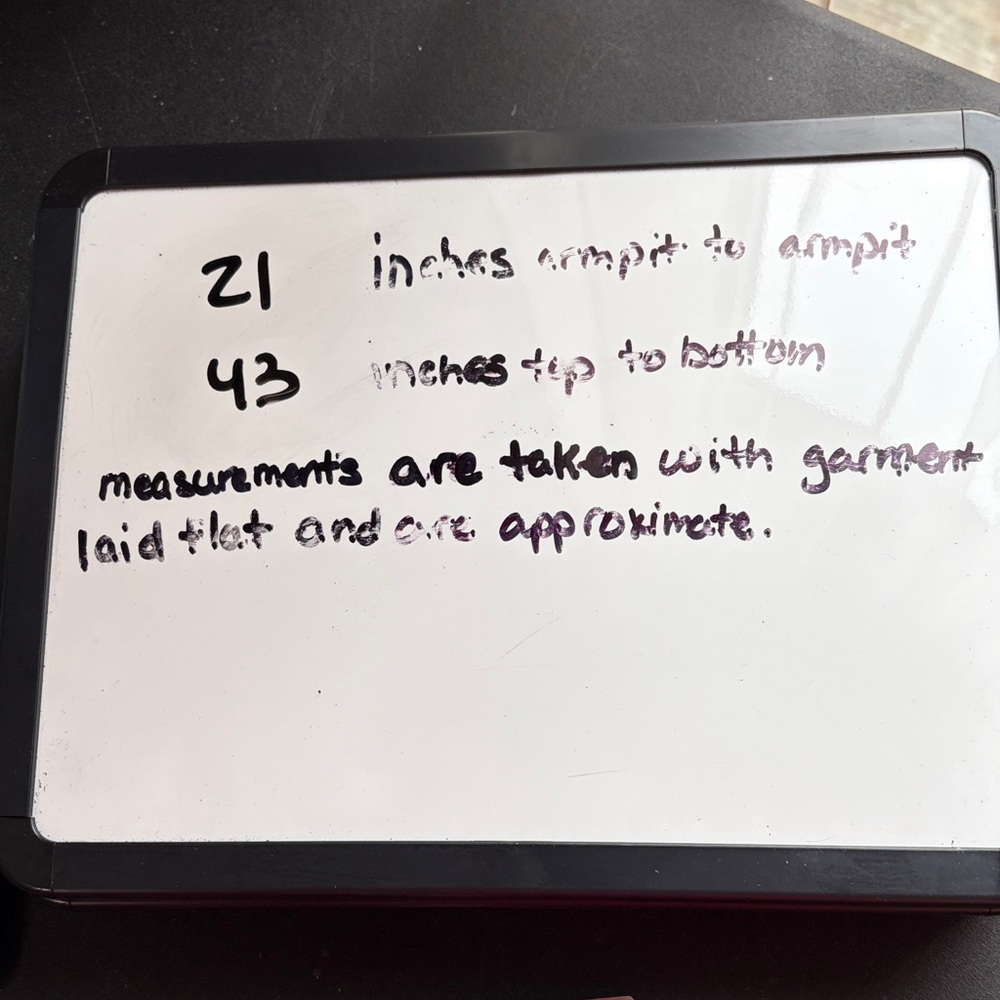 21 inches armpit to armpit
43 inches top to bottom
measurements are taken with garment
laid flat and are approximate.